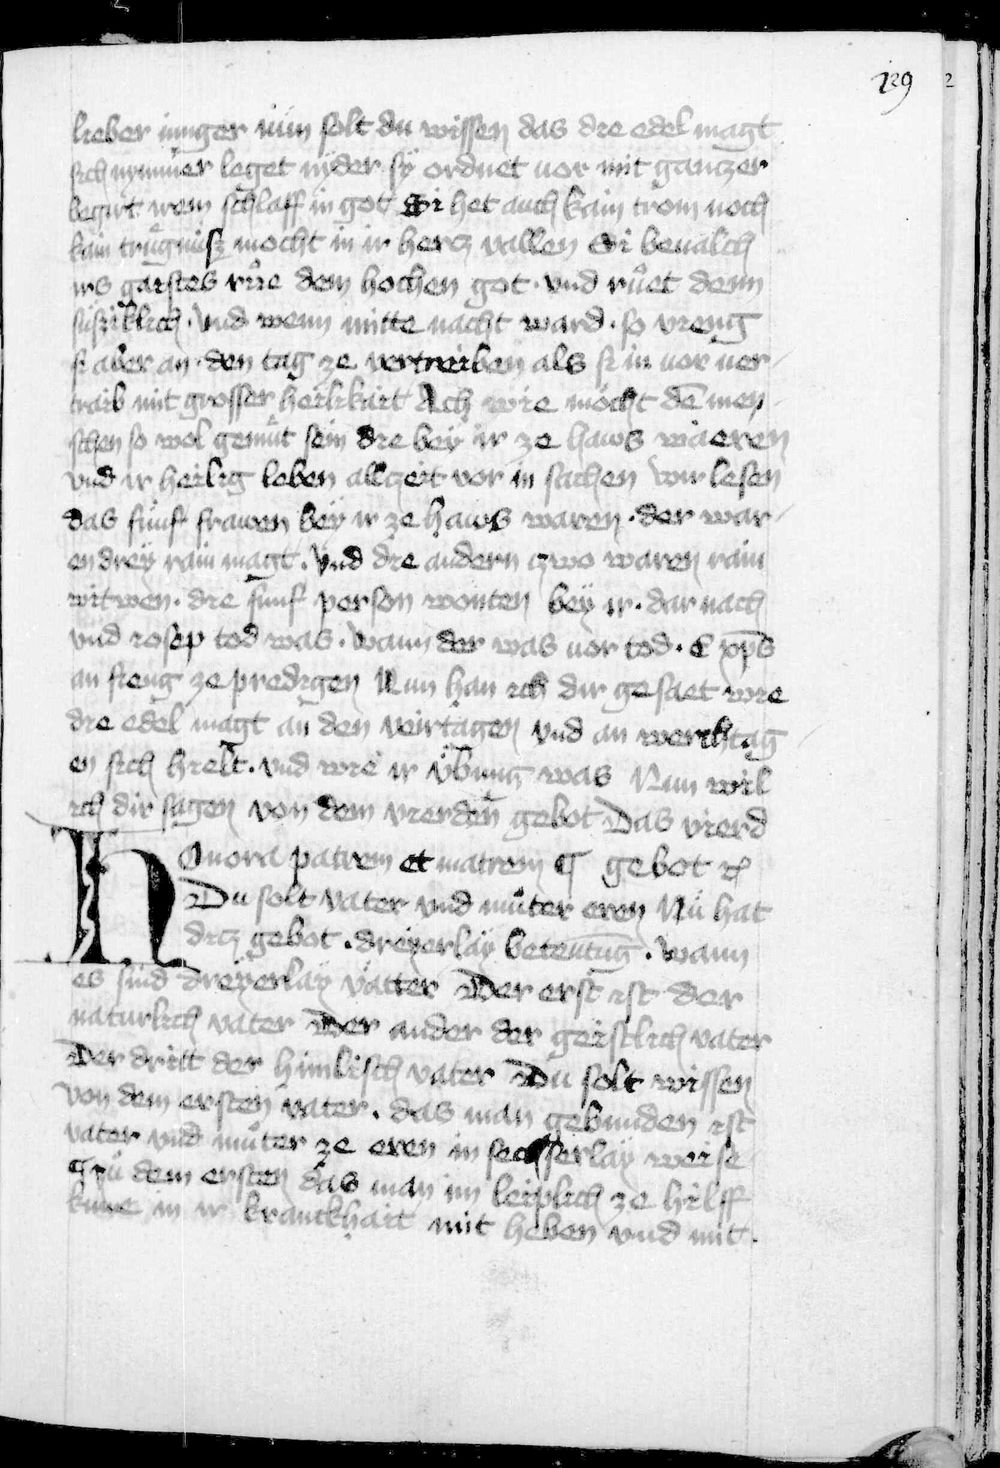 129
lieber iunger nun solt du wissen das die edel magt
sich nymmer leget nyder sy ordnet vor mit ganczer
begirt irem schlaff in got Si het auch kain trom noch
kain trugnusz mocht in ir hercz vallen Si beualch
irs gaistes rue dem hochen got · vnd ruet denn
 · vnd wenn mitte nacht ward · so vieng
si aber an · den tag ze vertreiben als si in vor ver-
traib mit grosser heilikait Ach wie mocht de men-
schen so wol gemut sein die bey ir ze haws waeren
vnd ir heilig leben allczeit vor in sachen wir lesen
das funf frawen bey ir ze haws waren · der war-
en drey rain magt · vnd die andern czwo waren rain
witwen · die funf person wonten bey ir · dar nach
vnd iosep tod was · wann der was vor tod · E xps
an fieng ze predigen Nun han ich dir gesaet wie
die edel magt an den veirtagen vnd an werchtag-
en sich hielt · vnd wie ir vbung was Nun wil
ich dir sagen von dem vierden gebot Das vierd
HOnora patrem et matrem ¶ gebot
Du solt vater vnd muter eren Nu hat
dicz gebot · dreyerlay beteutung · wann
es sind dreyerlay vatter Der erst ist der
naturlich vater Der ander der geistlich vater
Der dritt der himlisch vater Du solt wissen
von dem ersten vater · das man gebunden ist
vater vnd muter ze eren in sechserlay weise
¶ Zu dem ersten das man im leiplich ze hilff
kume in ir kranckhait mit heben vnd mit ·